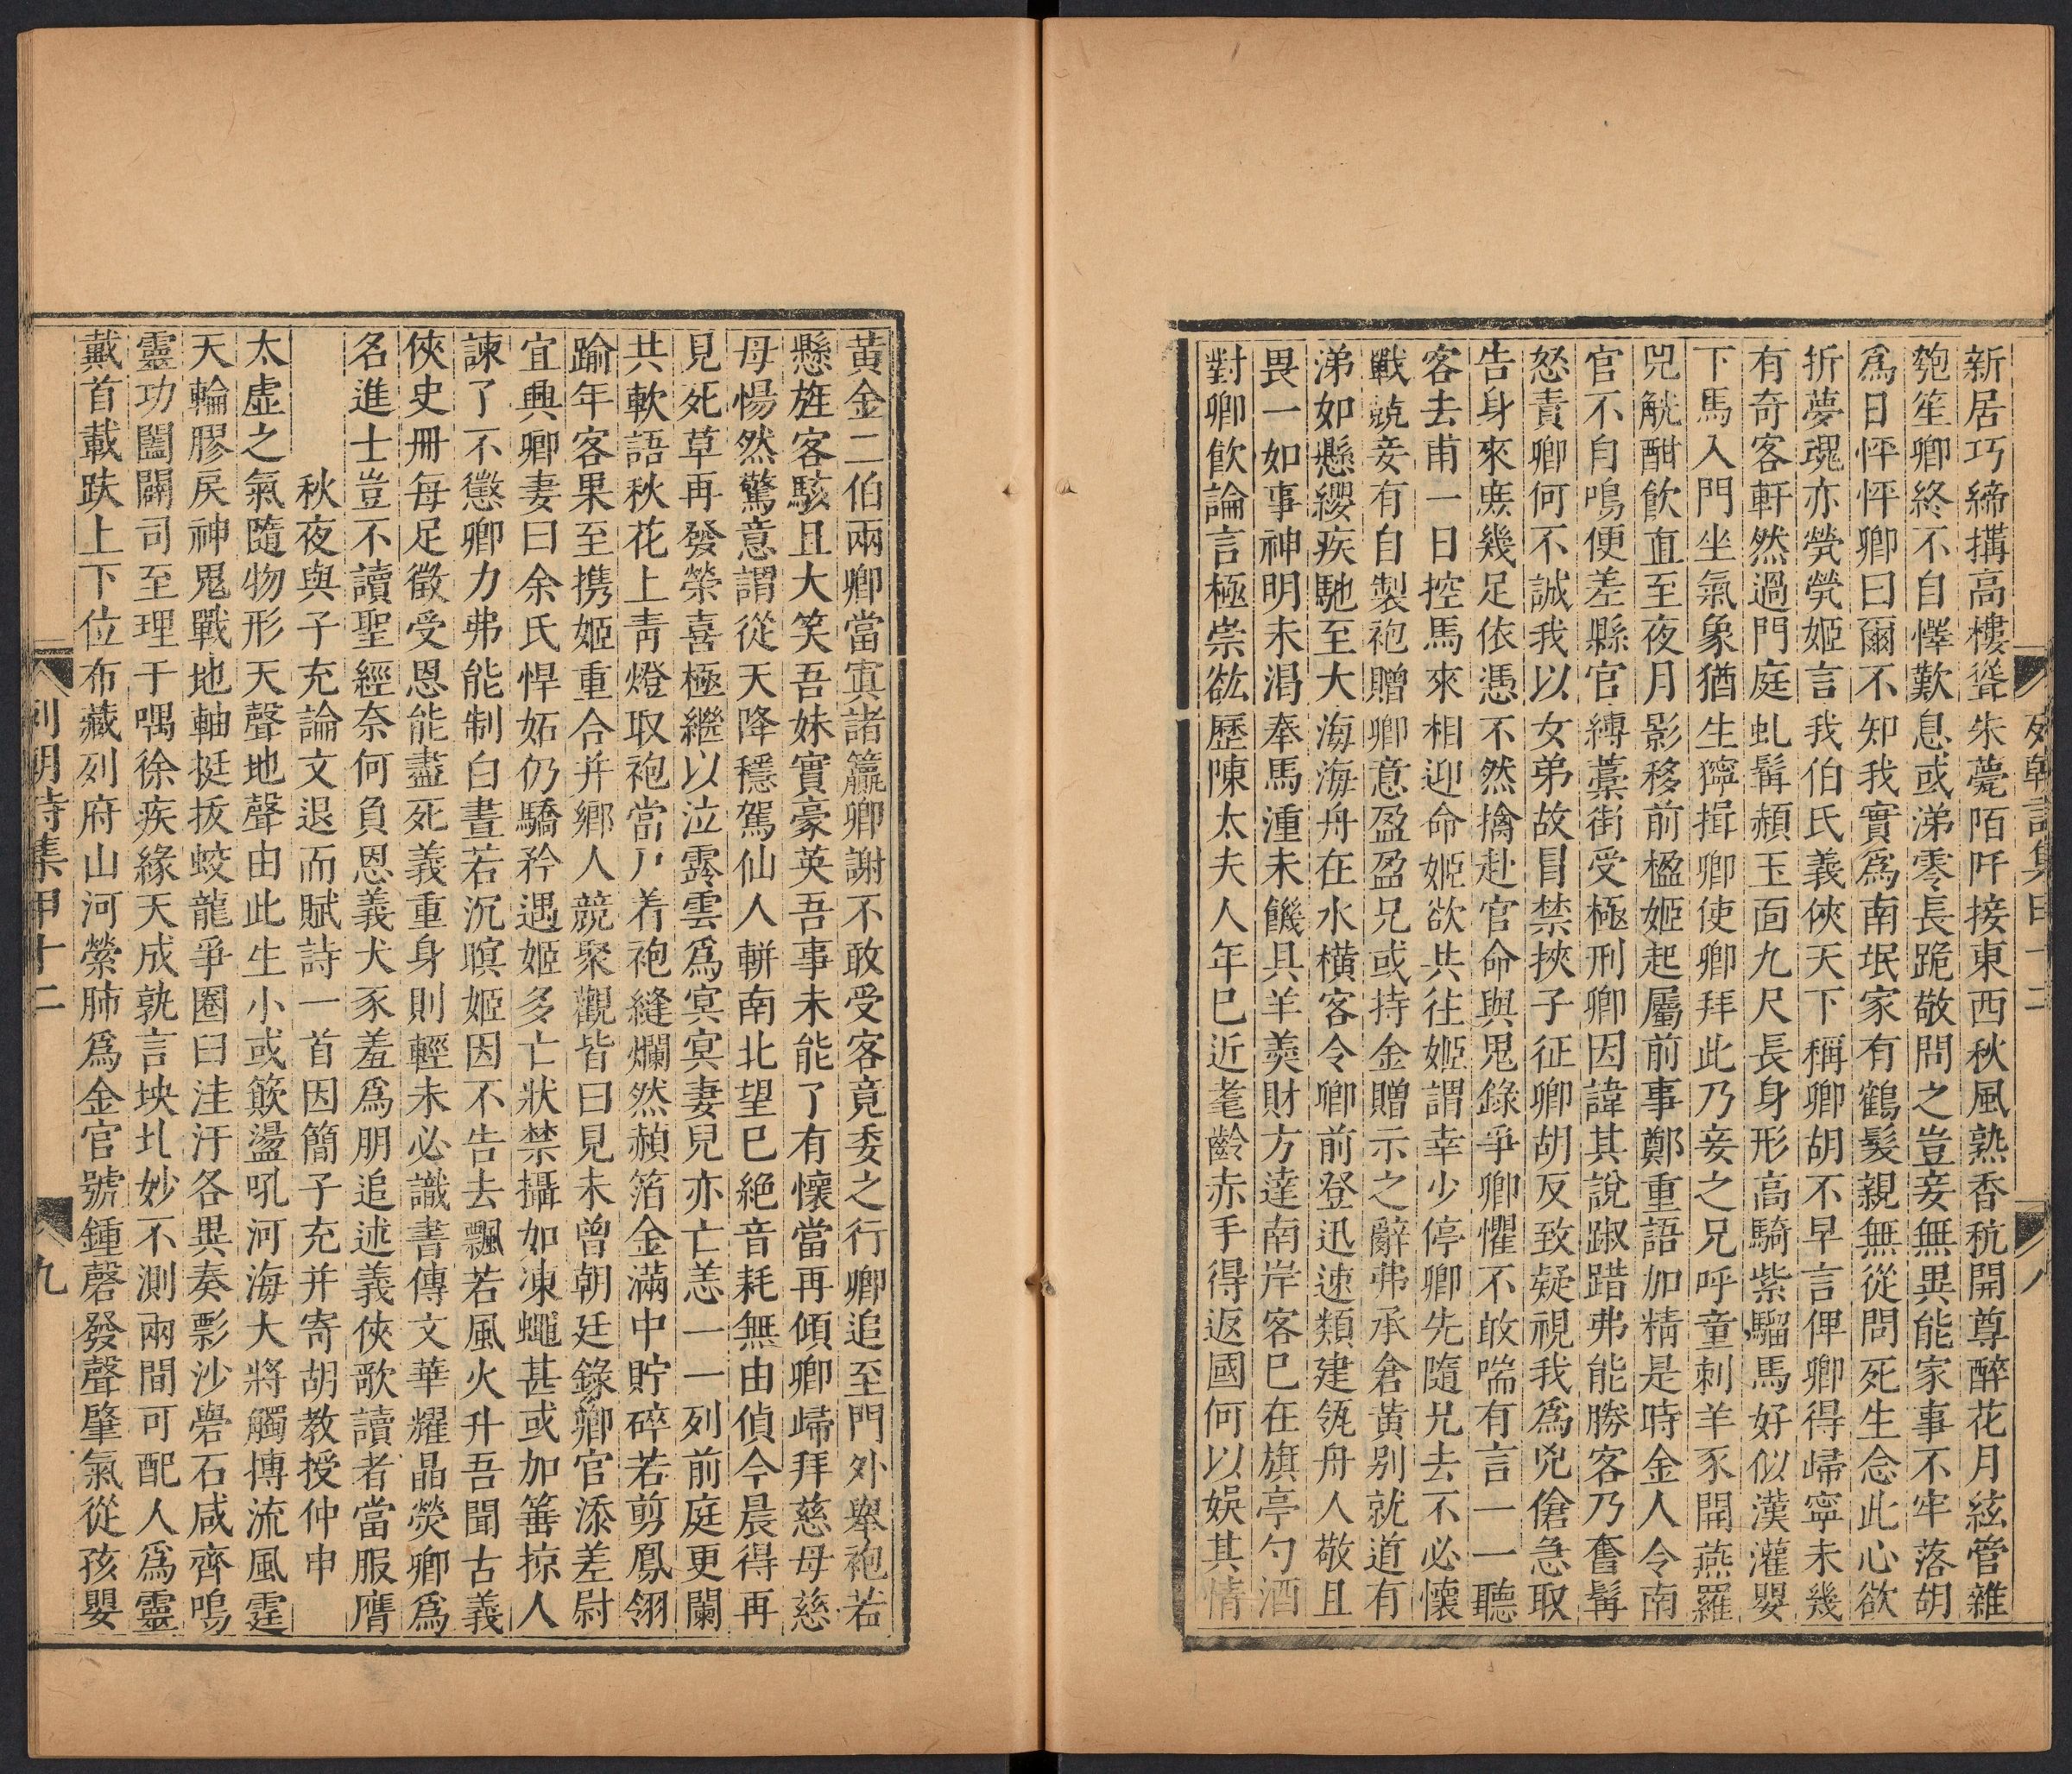 新居巧締搆高樓聳朱甍陌阡接東西秋風熟香秔開尊醉花月絃管雜
匏笙卿終不自懌歎息或涕零長跪敬問之豈妾無異能家事不牢落胡
爲日怦怦卿曰爾不知我實爲南垊家有鶴髮親無從問死生念此心欲
折夢魂亦煢煢姬言我伯氏義俠天下稱卿胡不早言俾卿得歸寧未幾
有奇客軒然過門庭虬髯頳玉面九尺長身形高騎紫騮馬好似漢灌嬰
下馬入門坐氣象猶生獰揖卿使卿拜此乃妾之兄呼童刺羊豕開燕羅
兕觥酣飲直至夜月影移前楹姬起屬前事鄭重語加精是時金人令南
官不自鳴便差縣官縛藁街受極刑卿因諱其說踧踖弗能勝客乃奮髯
怒責卿何不誠我以女弟故冒禁挾子征卿胡反致疑視我爲兇傖急取
告身來庶幾足依憑不然擒赴官命與鬼錄爭卿懼不敢喘有言一一聽
客去甫一日控馬來相迎命姬欲共往姬謂幸少停卿先隨兄去不必懷
戰兢妾有自製袍贈卿意盈盈兄或持金贈示之辭弗承倉黄别就道有
涕如懸纓疾馳至大海海舟在水橫客令卿前登迅速類建瓴舟人敬且
畏一如事神明未渴奉馬湩未饑具羊羮財方達南岸客巳在旗亭勺酒
對卿飲論言極崇竑歷陳太夫人年巳近耄齡赤手得返國何以娛其情
列朝詩集甲十二
八
黃金二伯兩卿當寘諸籯卿謝不敢受客竟委之行卿追至門外舉袍若
懸旌客駭且大笑吾妹實豪英吾事未能了有懷當再傾卿歸拜慈母慈
母惕然驚意謂從天降穩駕仙人軿南北望巳絕音耗無由偵今晨得再
見死草再發榮喜極繼以泣露雲爲冥冥妻兒亦亡恙一一列前庭更闌
共軟語秋花上靑燈取袍當戸着袍縫爛然赬箔金滿中貯碎若剪鳳翎
踰年客果至携姬重合并鄉人競聚觀皆曰見未曾朝廷錄卿官添差尉
宜興卿妻曰余氏悍妬仍驕矜遇姬多亡狀禁攝如凍蠅甚或加箠掠人
諫了不懲卿力弗能制白晝若沉暝姬因不告去飄若風火升吾聞古義
俠史冊每足徵受恩能盡死義重身則輕未必識書傳文華耀晶熒卿爲
名進士豈不讀聖經奈何負恩義犬豕羞爲朋追述義俠歌讀者當服膺
秋夜與子充論文退而賦詩一首因簡子充并寄胡教授仲申
太虛之氣隨物形天聲地聲由此生小或簸盪吼河海大將觸摶流風霆
天輪膠戾神鬼戰地軸挺拔蛟龍爭圈臼洼汙各異奏剽沙礜石咸齊鳴
靈功闔闢司至理于喁徐疾緣天成孰言坱圠妙不測兩間可配人爲靈
戴首載趺上下位布藏列府山河縈肺爲金官號鍾磬發聲肇氣從孩嬰
列朝詩集甲十二
九